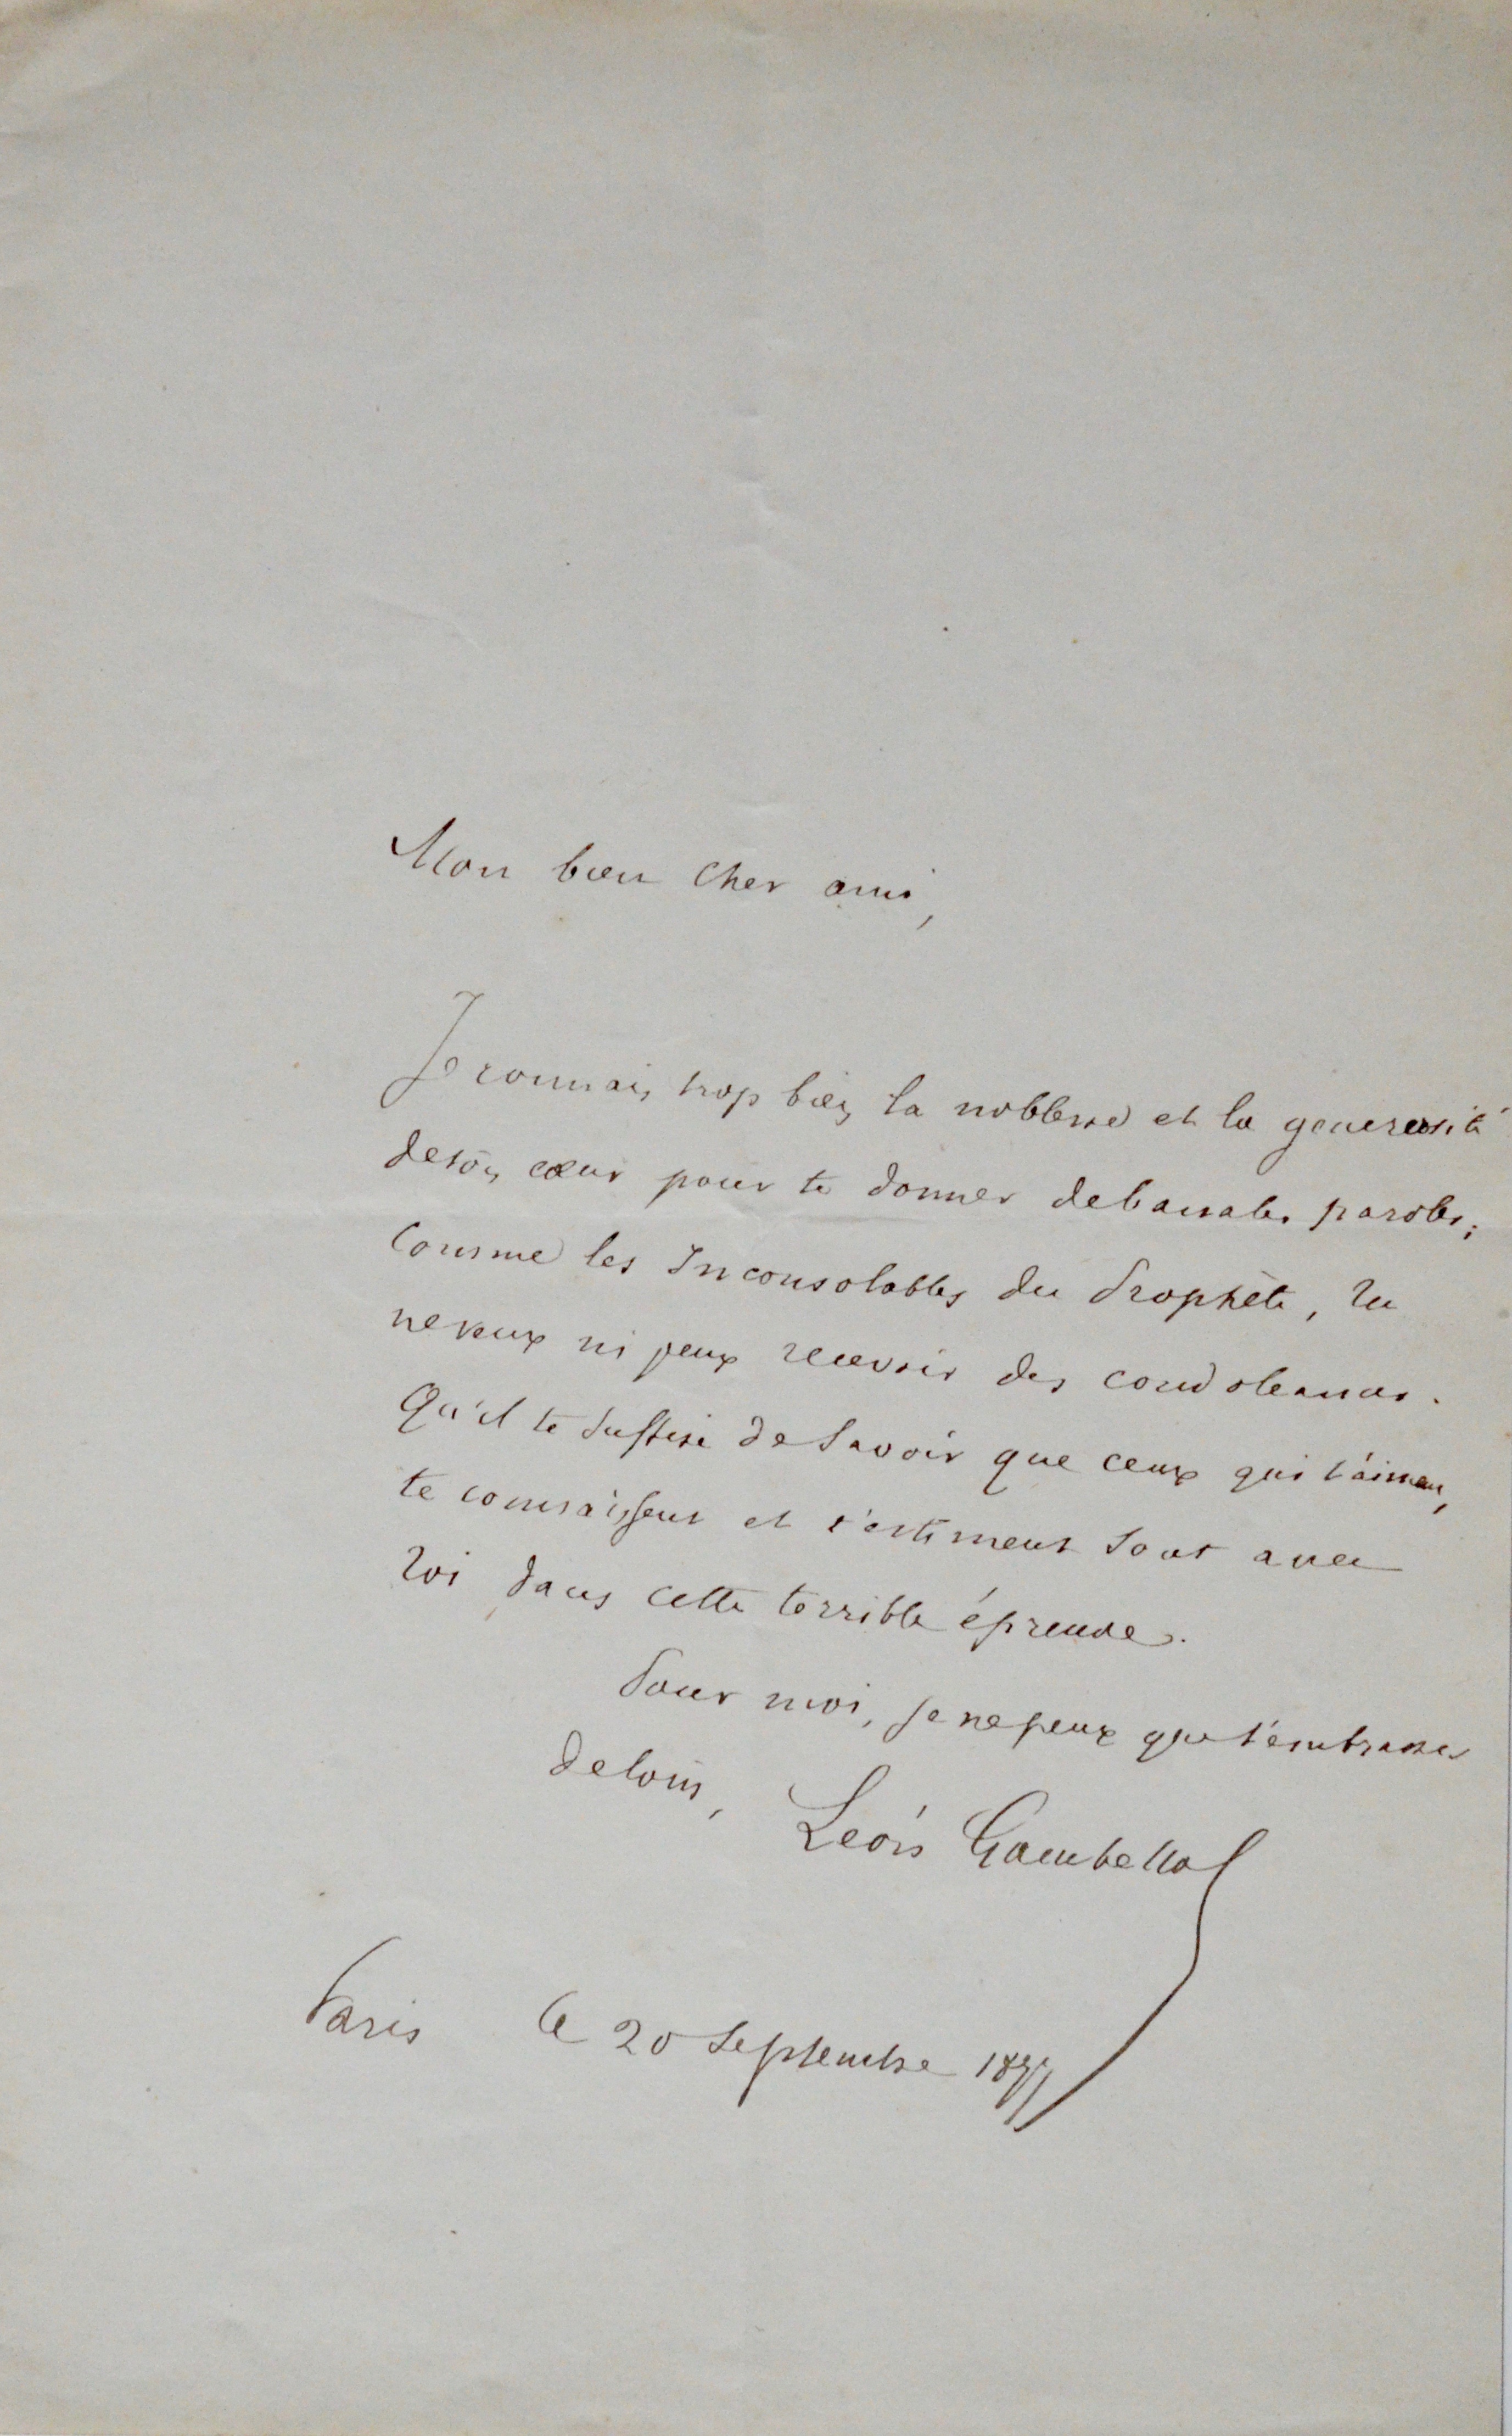 Mon bien cher ami,
Je connais trop bien la noblesse et la generosité
de ton cœur pour te donner de banales paroles;
Comme les Inconsolables du Prophète, tu
ne veux ni peux recevoir des condoleances.
Qu'il te suffise de savoir que ceux qui t'aiment,
te connaissent et t'estiment sont avec
toi dans cette terrible épreuve.
Pour moi, je ne peux que t'embrasser
de loin,
Léon Gambetta
Paris le 20 Septembre 1877